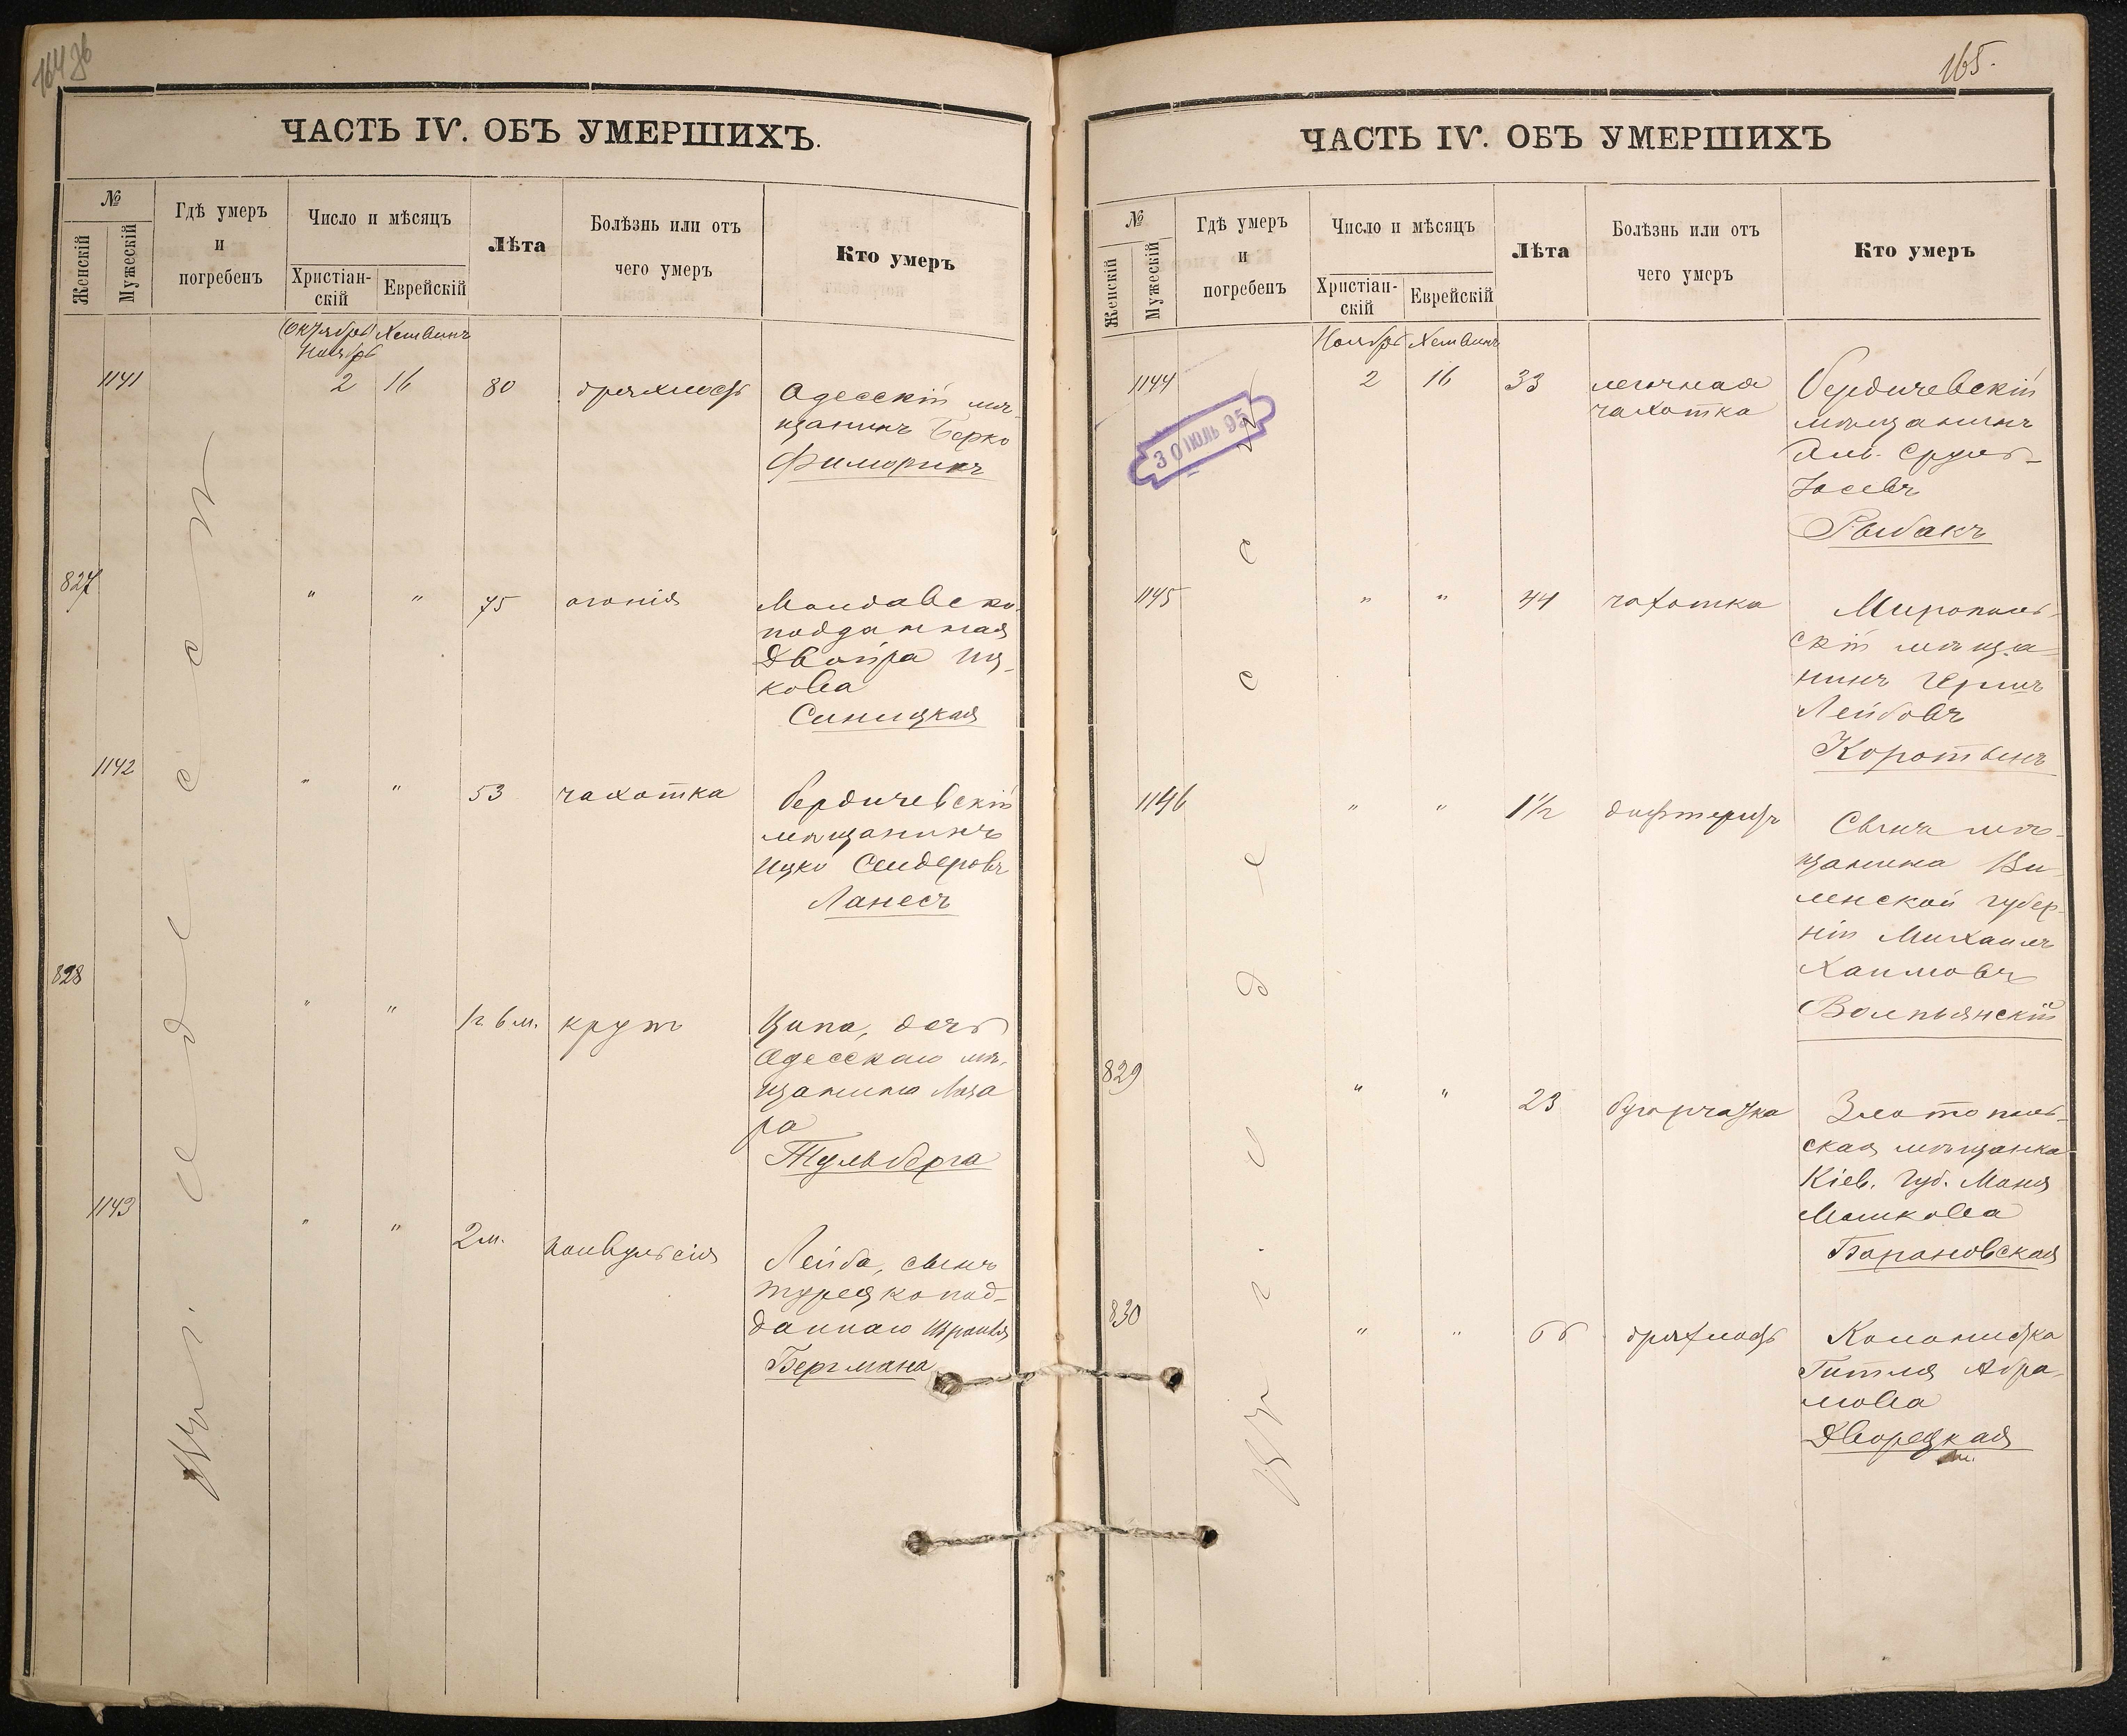 164 об
ЧАСТЬ IV. ОБЪ УМЕРШИХЪ.
№
Женскій
Мужескій
Гдѣ умеръ
и
погребенъ
Число и мѣсяцъ
Христіан-
скій
Еврейскій
Лѣта
Болѣзнь или отъ
чего умеръ
Кто умеръ
(Октябрь) Хешвинъ
Ноябрь
1141 2 16 80 дряхлость
Одесскій мѣ-
щанинъ Берко
Фиморинъ
827 " " 75 агонія
Молдавско-
подданная
Двойра Иц-
кова
Синицкая
1142 " " 53 чахотка
Бердичевскій
мѣщанинъ
Ицко Сендеровъ
Ланесъ
828 " " 1г. 6 м. крупъ
Ципа, дочь
Одесскаго мѣ-
щанина Лаза
ра
Тульберга
1143 " " 2 м. конвульсія
Лейба, сынъ
турецкопод-
даннаго Израиля
Бергмана
Въ г. Одессѣ
165.
ЧАСТЬ IV. ОБЪ УМЕРШИХЪ
№
Женскій
Мужескій
Гдѣ умеръ
и
погребенъ
Число и мѣсяцъ
Христіан-
скій
Еврейскій
Лѣта
Болѣзнь или отъ
чего умеръ
Кто умеръ
Ноябрь Хешвинъ
1144 2 16 33 легочная
чахотка
30 ІЮЛЬ 95
Бердичевскій
мѣщанинъ
Срулъ-
Іосевъ
Рыбакъ
1145 " " 44 чахотка
Мирополь-
скій мѣща-
нинъ Гершъ
Лейбовъ
Коротынъ
1146 " " 1 1/2 дифтеритъ
Сынъ мѣ-
щанина Ви-
ленской губер-
ніи Михаилъ
Хаимовъ
Волпьянскій
829 " " 23 бугорчатка
Златополь-
ская мѣщанка
Кіев. губ. Маня
Мошкова
Барановская
830 " " 66 дряхлость
Колонистка
Гитля Абра-
мова
Дворецкая
Въ г. Одессѣ